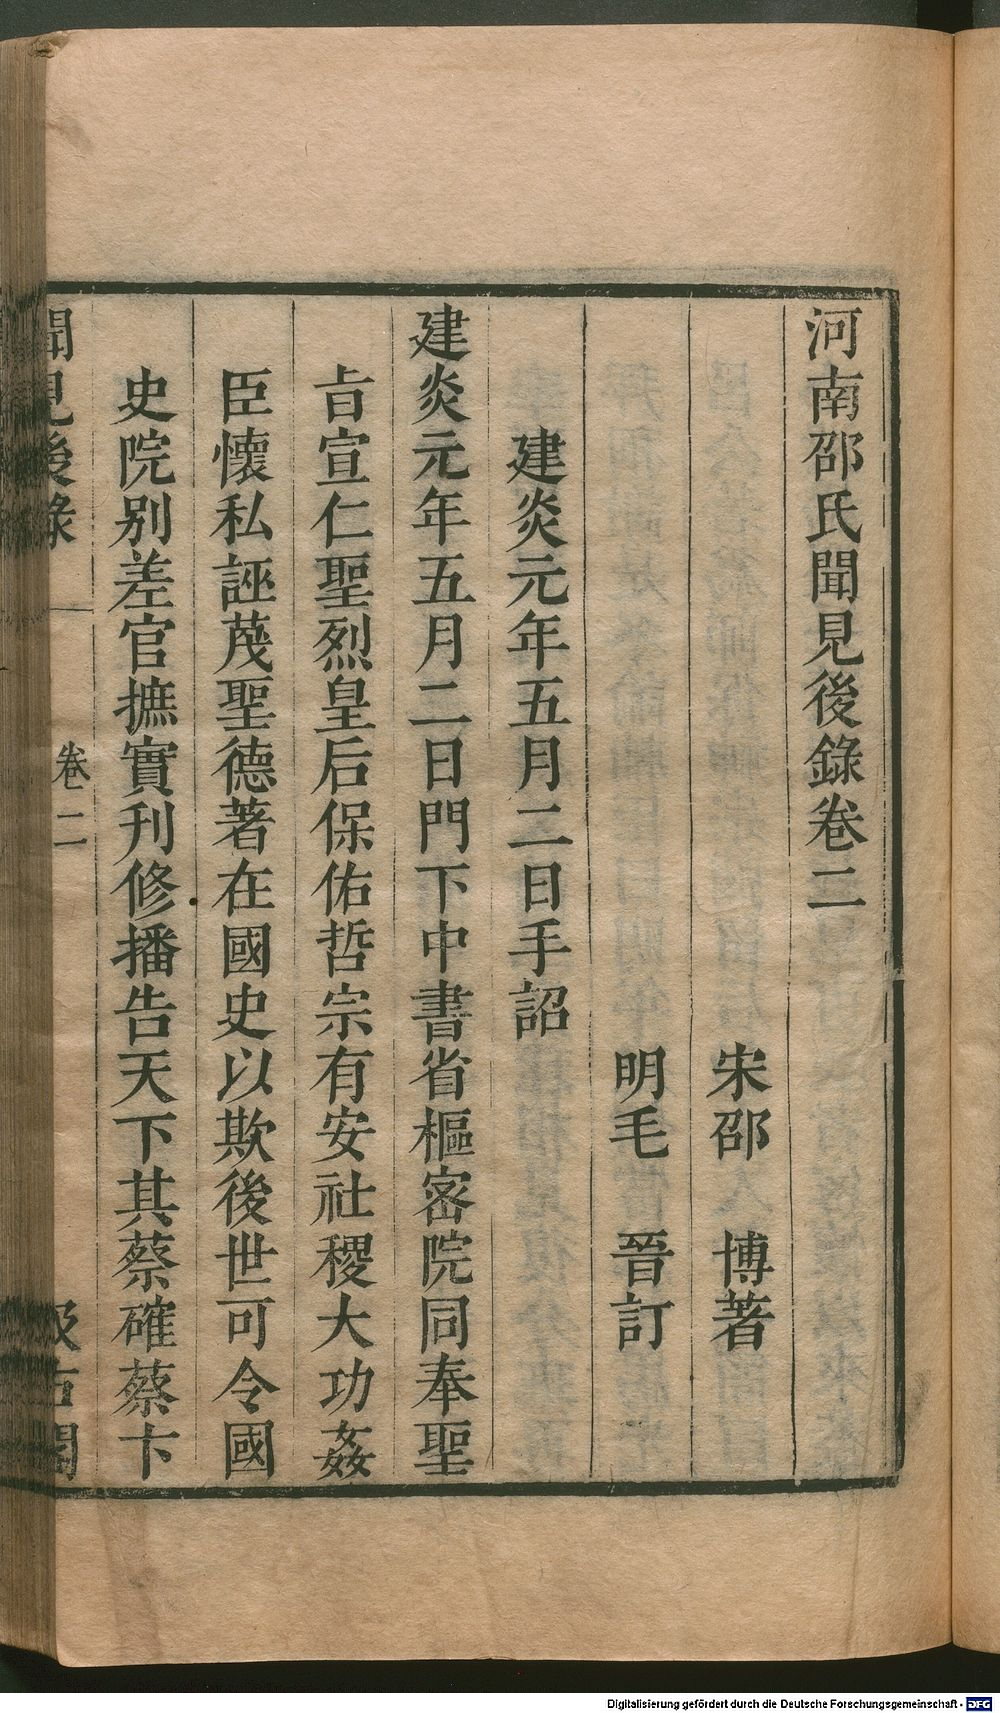 河南邵氏聞見後錄卷二
宋邵　博著
明毛　晉訂
建炎元年五月二日手詔
建炎元年五月二日門下中書省樞密院同奉聖
㫖宣仁聖烈皇后保佑哲宗有安社稷大功姦
臣懷私誣蔑聖德著在國史以欺後世可令國
史院别差官摭實刊修播告天下其蔡確蔡卞
聞見後錄　卷二　汲古閣
Digitalisierung gefördert durch die Deutsche Forschungsgemeinschaft - DFG